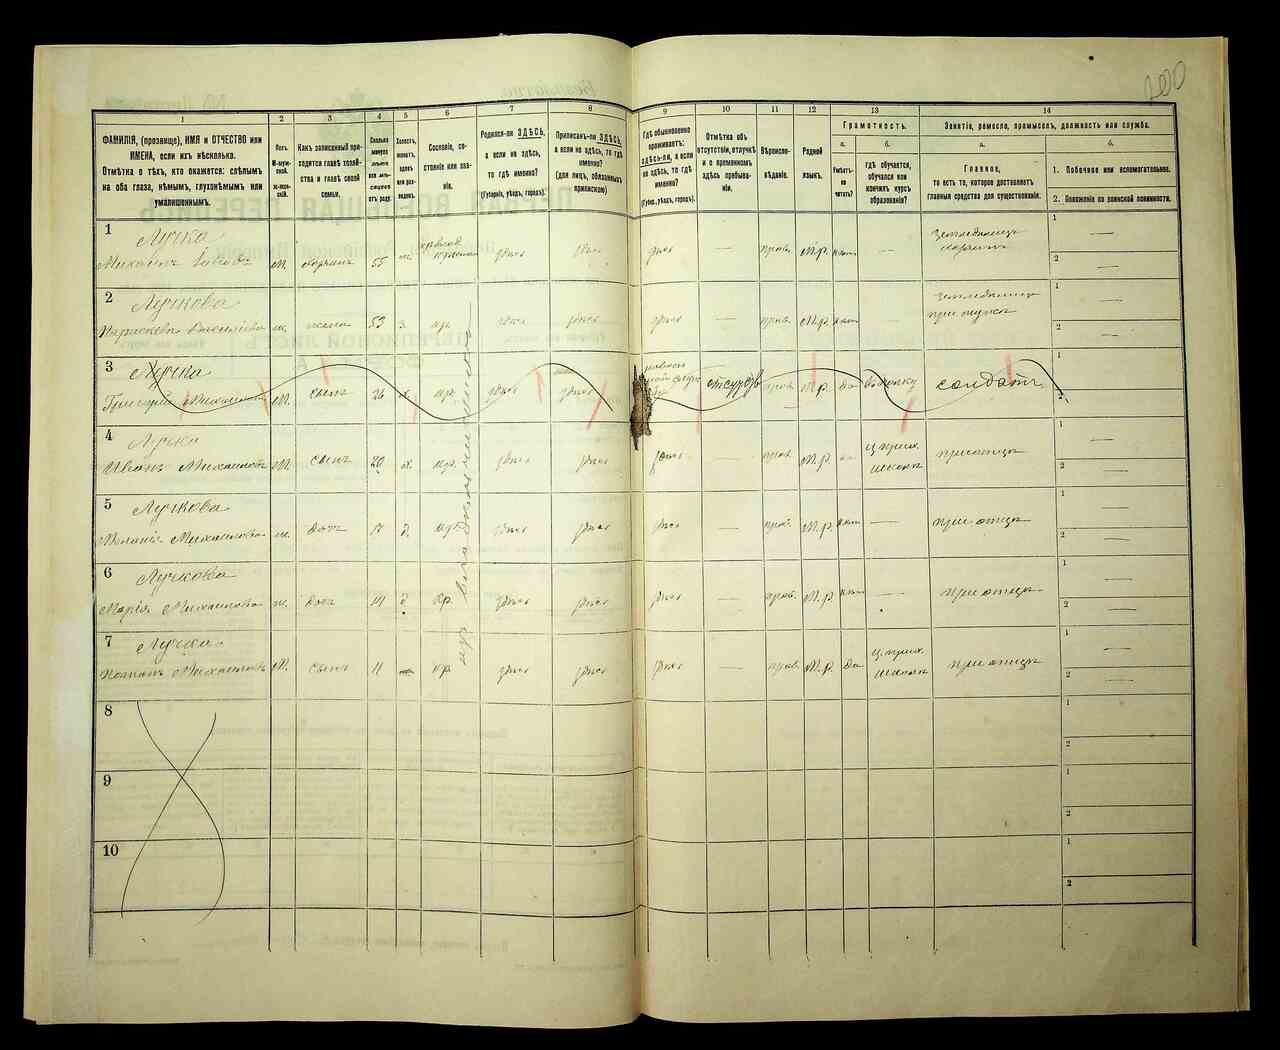 200
1
2
3
4
5
6
7
8
9
10
11
12
13
14
ФАМИЛІЯ, (прозвище), ИМЯ и ОТЧЕСТВО или
ИМЕНА, если ихъ нѣсколько.
Отмѣтка о тѣхъ, кто окажется: слѣпымъ
на оба глаза, нѣмымъ, глухонѣмымъ или
умалишеннымъ.
Полъ.
М-муж-
ской.
Ж-жен-
скій.
Какъ записанный при-
ходится главѣ хозяй-
ства и главѣ своей
семьи.
Сколько
минуло
лѣтъ
или мѣ-
сяцевъ
отъ роду.
Холостъ,
женатъ,
вдовъ
или раз-
веденъ.
Сословіе, со-
стояніе или зва-
ніе.
Родился-ли ЗДѢСЬ,
а если не здѣсь,
то гдѣ именно?
(Губернія, уѣздъ, городъ).
Приписанъ-ли ЗДѢСЬ,
а если не здѣсь, то гдѣ
именно?
(для лицъ, обязанныхъ
припискою)
Гдѣ обыкновенно
проживаетъ:
ЗДѢСЬ-ли, а если
не здѣсь, то гдѣ
именно?
(Губер., уѣздъ, городъ).
Отмѣтка объ
отсутствіи, отлучкѣ
и о временномъ
здѣсь пребыва-
ніи.
Вѣроиспо-
вѣданіе.
Родной
языкъ.
Грамотность.
а.
Умѣетъ-ли
читать?
б.
гдѣ обучается,
обучался или
кончилъ курсъ
образованія?
Занятіе, ремесло, промыселъ, должность или служба.
а.
Главное,
то есть то, которое доставляетъ
главныя средства для существованія.
б.
1. Побочное или вспомогательное.
2. Положеніе по воинской повинности.
1
Лучка
Михаилъ
М.
хозяинъ 55
здѣсь
здѣсь
здѣсь
—
прав.
М.р.
нѣтъ
—
1
—
2
—
2
Лучкова
Параскева Василіева
ж.
жена 53
кр.
здѣсь
здѣсь
здѣсь
—
прав.
М.р.
нѣтъ
—
1
—
2
—
3
Лучка
Григорій Михаиловъ
М.
сынъ 26
кр.
здѣсь
здѣсь
прав.
М.р.
да
солдатъ
1
2
4
Лучка
Иванъ Михаиловъ
М.
сынъ 20
х.
кр.
здѣсь
здѣсь
здѣсь
—
прав.
М.р.
да
ц. прих.
школѣ
при отцѣ
1
—
2
—
5
Лучкова
Меланія Михаиловна
ж.
дочь 17
д.
кр.
здѣсь
здѣсь
здѣсь
—
прав.
М.р.
нѣтъ
—
при отцѣ
1
—
2
—
6
Лучкова
Марія Михаиловна
ж.
дочь 14
д.
кр.
здѣсь
здѣсь
здѣсь
—
прав.
М.р.
нѣтъ
—
при отцѣ
1
—
2
—
7
Лучка
Михаиловъ
М.
сынъ 11
кр.
здѣсь
здѣсь
здѣсь
—
прав.
М.р.
да
ц. прих.
школѣ
при отцѣ
1
—
2
—
8
1
2
9
1
2
10
1
2